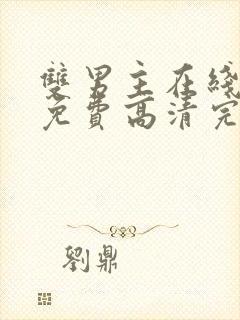 雙男主在綫
免費高清完
劉鼎